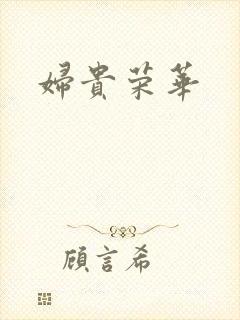 婦貴荣華
顧言希